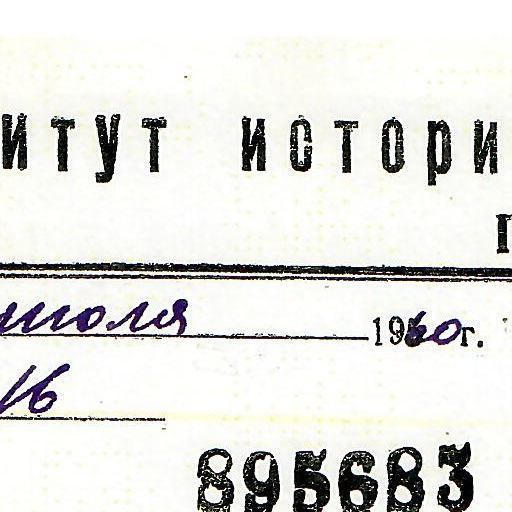 итут истори
июля 1960 г.
16
895683